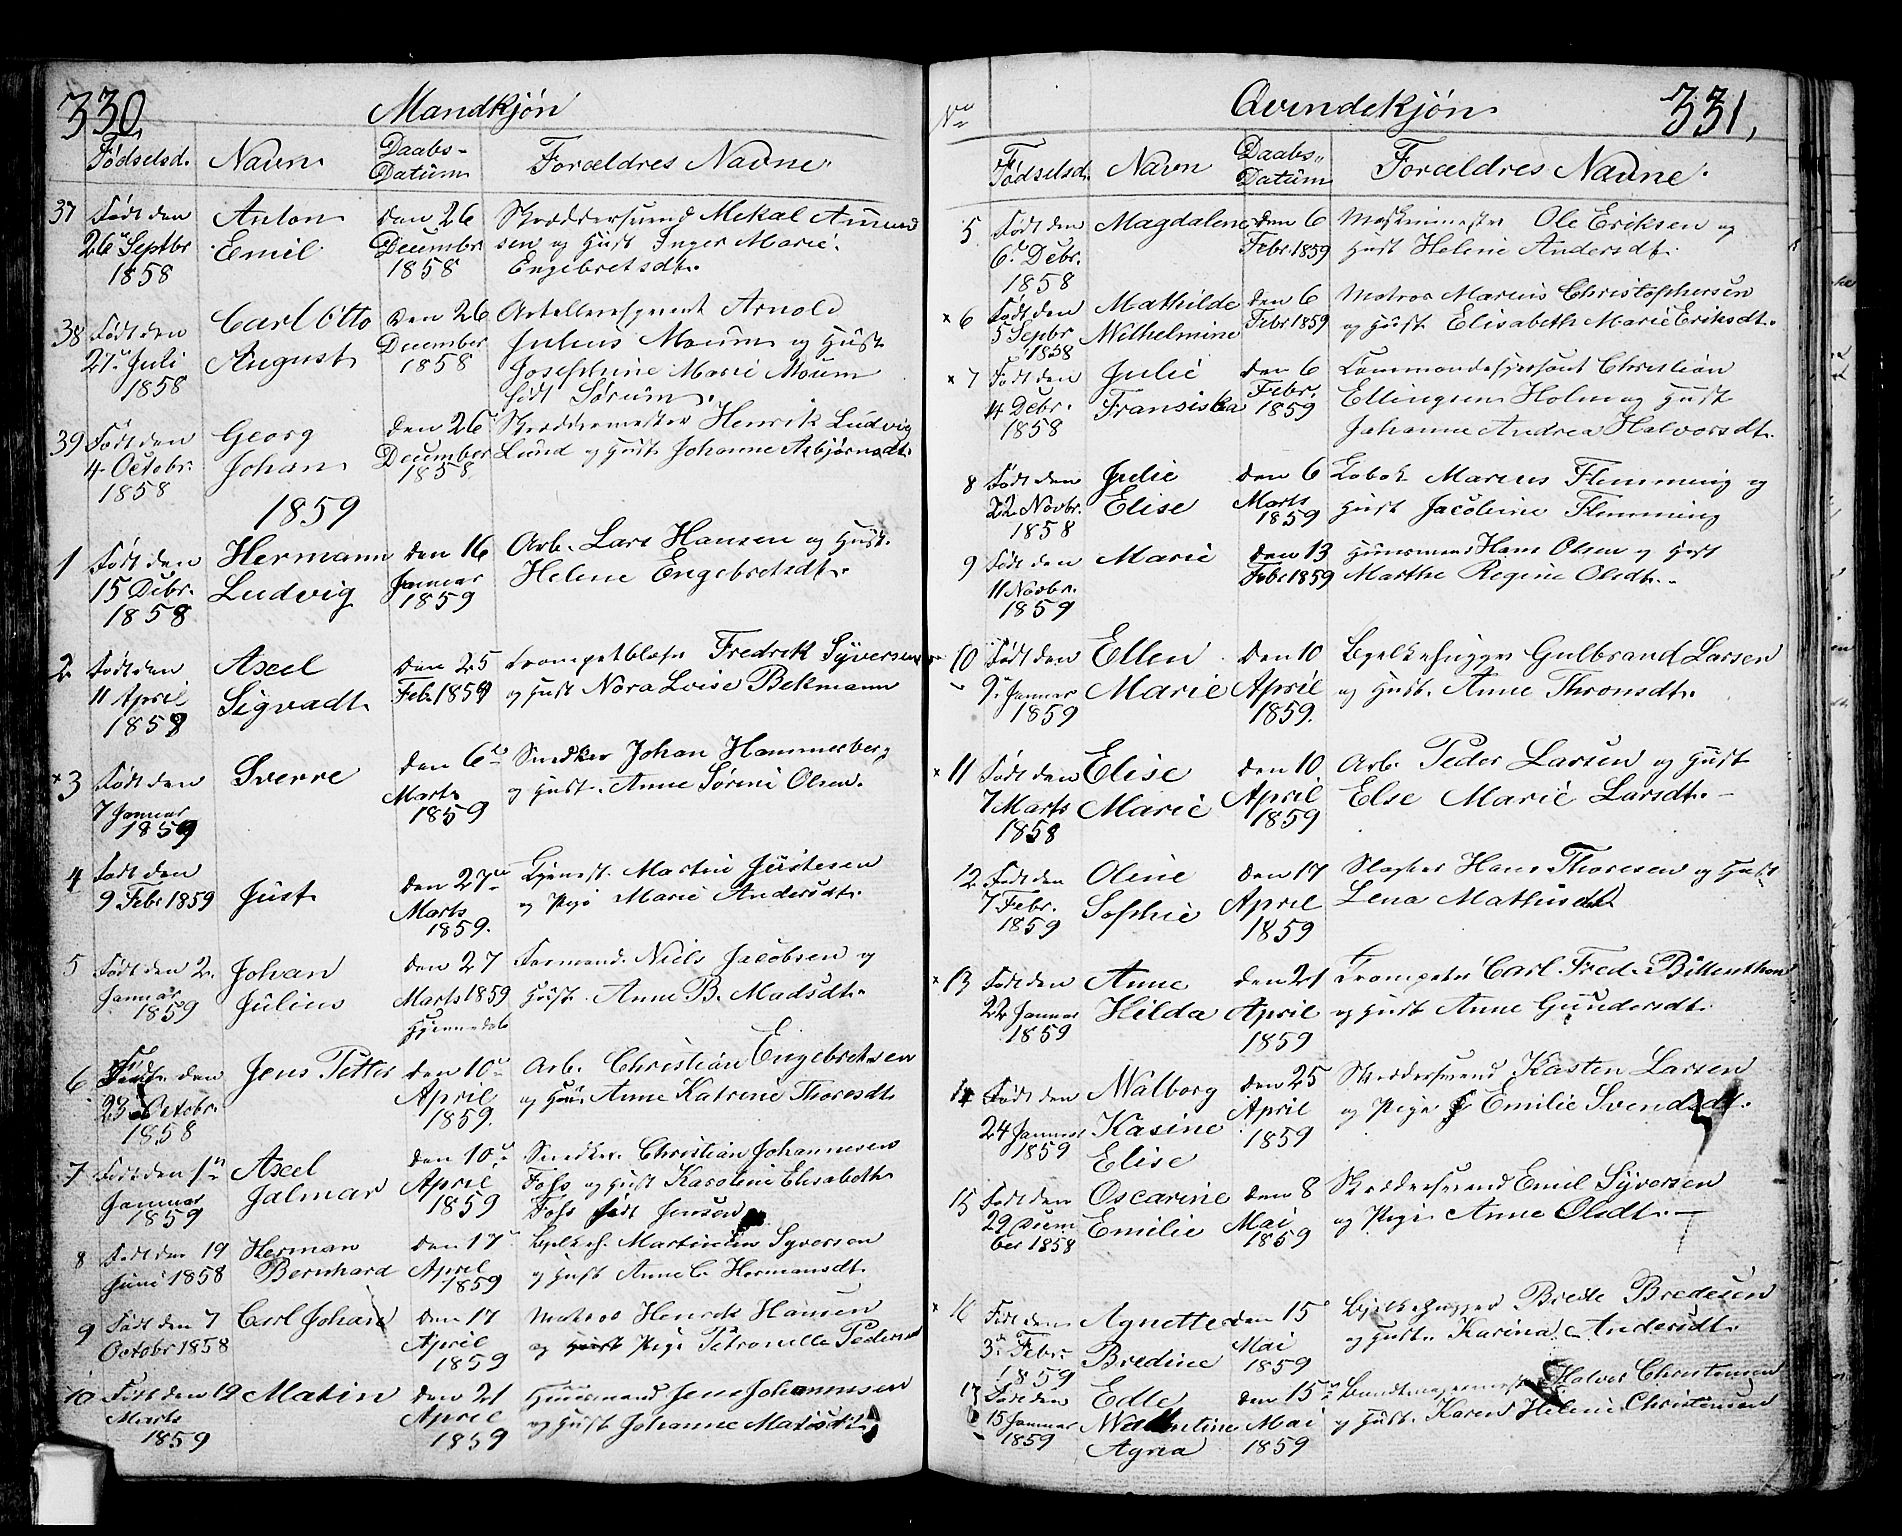 330
Mandkjøn
Fødselsd. Navn Daabs-Datum Forældres Navne
37 Født den Anton den 26 Skræddersvend Mekal Amund
26 Septbr Emil Decembr sen og Hust Inger Marie
1858 1858 Engebretsdt.
38 Født den Carl Otto den 26 Artellerisergeant Arnold
27 Juli August December Julius Moum og Hust
1858 1858 Josephine Marie Moum
født Sørum.
39 Født den Georg den 26 Skreddermester Henrik Ludvig
4 Octobr. Johan December Lund og Hust Johanne Asbjørnsdt.
1858 1858
1859
1 Født den Hermann den 16 Arb. Lars Hansen og Hust.
15 Debr. Ludvig Januar Helene Engebretsdt.
1858 1859
2 Født den Axel den 25 Trompetblæser Fredrik Syversen
11 April Sigvadt Feb. 1859 og Hust Nora Lovise Bekmann
1858
3 Født den Sverre den 6 Snedker Johan Hammerberg
7 Januar Marts og Hust. Anne Sørine Olsen.
1859 1859
4 Født den Just den 27 Tjenest. Martin Justesen
9 Febr 1859 Marts og Pige Marie Andersdt.
1859.
5 Født den 2. Johan den 27 Formand. Niels Jacobsen og
Januar Julius Marts 1859 Hust. Anne B. Madsdt.
1859 Hjemmedøb
6 Født den Jens Petter den 10 Arb. Christian Engebretsen
23 Octobr. April og Hu: Anne Katrine Thoresdt.
1858 1859.
7 Født den 1 Axel den 10 Snedker. Christian Johannesen
Januar Jalmar April Foss og Hust Karoline Elisabeth
1859 1859 Foss født Jensen
8 Født den 19 Herman den 17 Martinius Syversen
Juni 1858 Bernhard April og Hust Anne C. Hermansdt.
1859
9 Født den 7 Carl Johan den 17 Matros Henrik Hansen
Octobr 1858 April og Pige Petronelle Peders
1859
10 Født den 19 Matin den 21 Huusmand Jens Johannesen
Marts April og Hust Johanne Matisdt.
1859 1859
331,
No Qvindekjøn
Fødselsd. Navn Daabs-Datum Forældres Navne.
5 Født den Magdalene den 6 Maskinmester Ole Eriksen og
6 Debr. Febr 1859 Hust Helene Andersdt.
1858
x 6 Født den Mathilde den 6 Matros Marius Christophersen
5 Sepbr Wilhelmine Febr 1859 og Hust Elisabeth Marie Eriksdt.
1858
x 7 Født den Julie den 6 Commandersersant Christian
4 Debr. Fransiska Febr. Ellingsen Holm og Hust
1858 1859 Johanne Andrea Halvorsdt.
8 Født den Julie den 6 Marius Flemming og
22 Novbr. Elise Marts Hust Jacobine Flemming
1858 1859
9 Født den Marie den 13 Huusmand Hans Olsen og Hust
11 Novbr. Feb 1859 Marthe Regine Olsdt.
1859
10 Født den Ellen den 10 Bjelkehugger Gulbrand Larsen
9 Januar Marie April og Hust. Anne Thronsdt.
1859 1859.
x 11 Født den Elise den 10 Arb. Peder Larsen og Hust
7 Marts Marie April Else Marie Larsdt.
1858 1859
12 Født den Oline den 17 Slagter Hans Thoresen og Hust
7 Febr. Sophie April Lena Mathisdt
1859 1859
x 13 Født den Anne den 21 Trompeter Carl Fred.
22 Januar Hilda April og Hust Anne Gundersdt.
1859 1859
14 Født den Walborg den 25 Skreddersvend Kasten Larsen
24 Januar Kasine April og Pige Emilie Svendsdt.
1859 Elise 1859
15 Født den Oscarine den 8 Skræddersvend Emil Syversen
29 Decem Emilie Mai og Pige Anne Olsdt.
ber 1858 1859
x 16 Født den Agnette den 15 Bjelkehugger Brede Bredesen
3 Febr. Bredine Mai og Hust. Karina Andersdt.
1859 1859
17 Født den Edle den 15 Buntmagermester Halvor Christensen
15 Januar Walentine Mai og Hust. Karen Helene Christensen
1859 Agna 1859